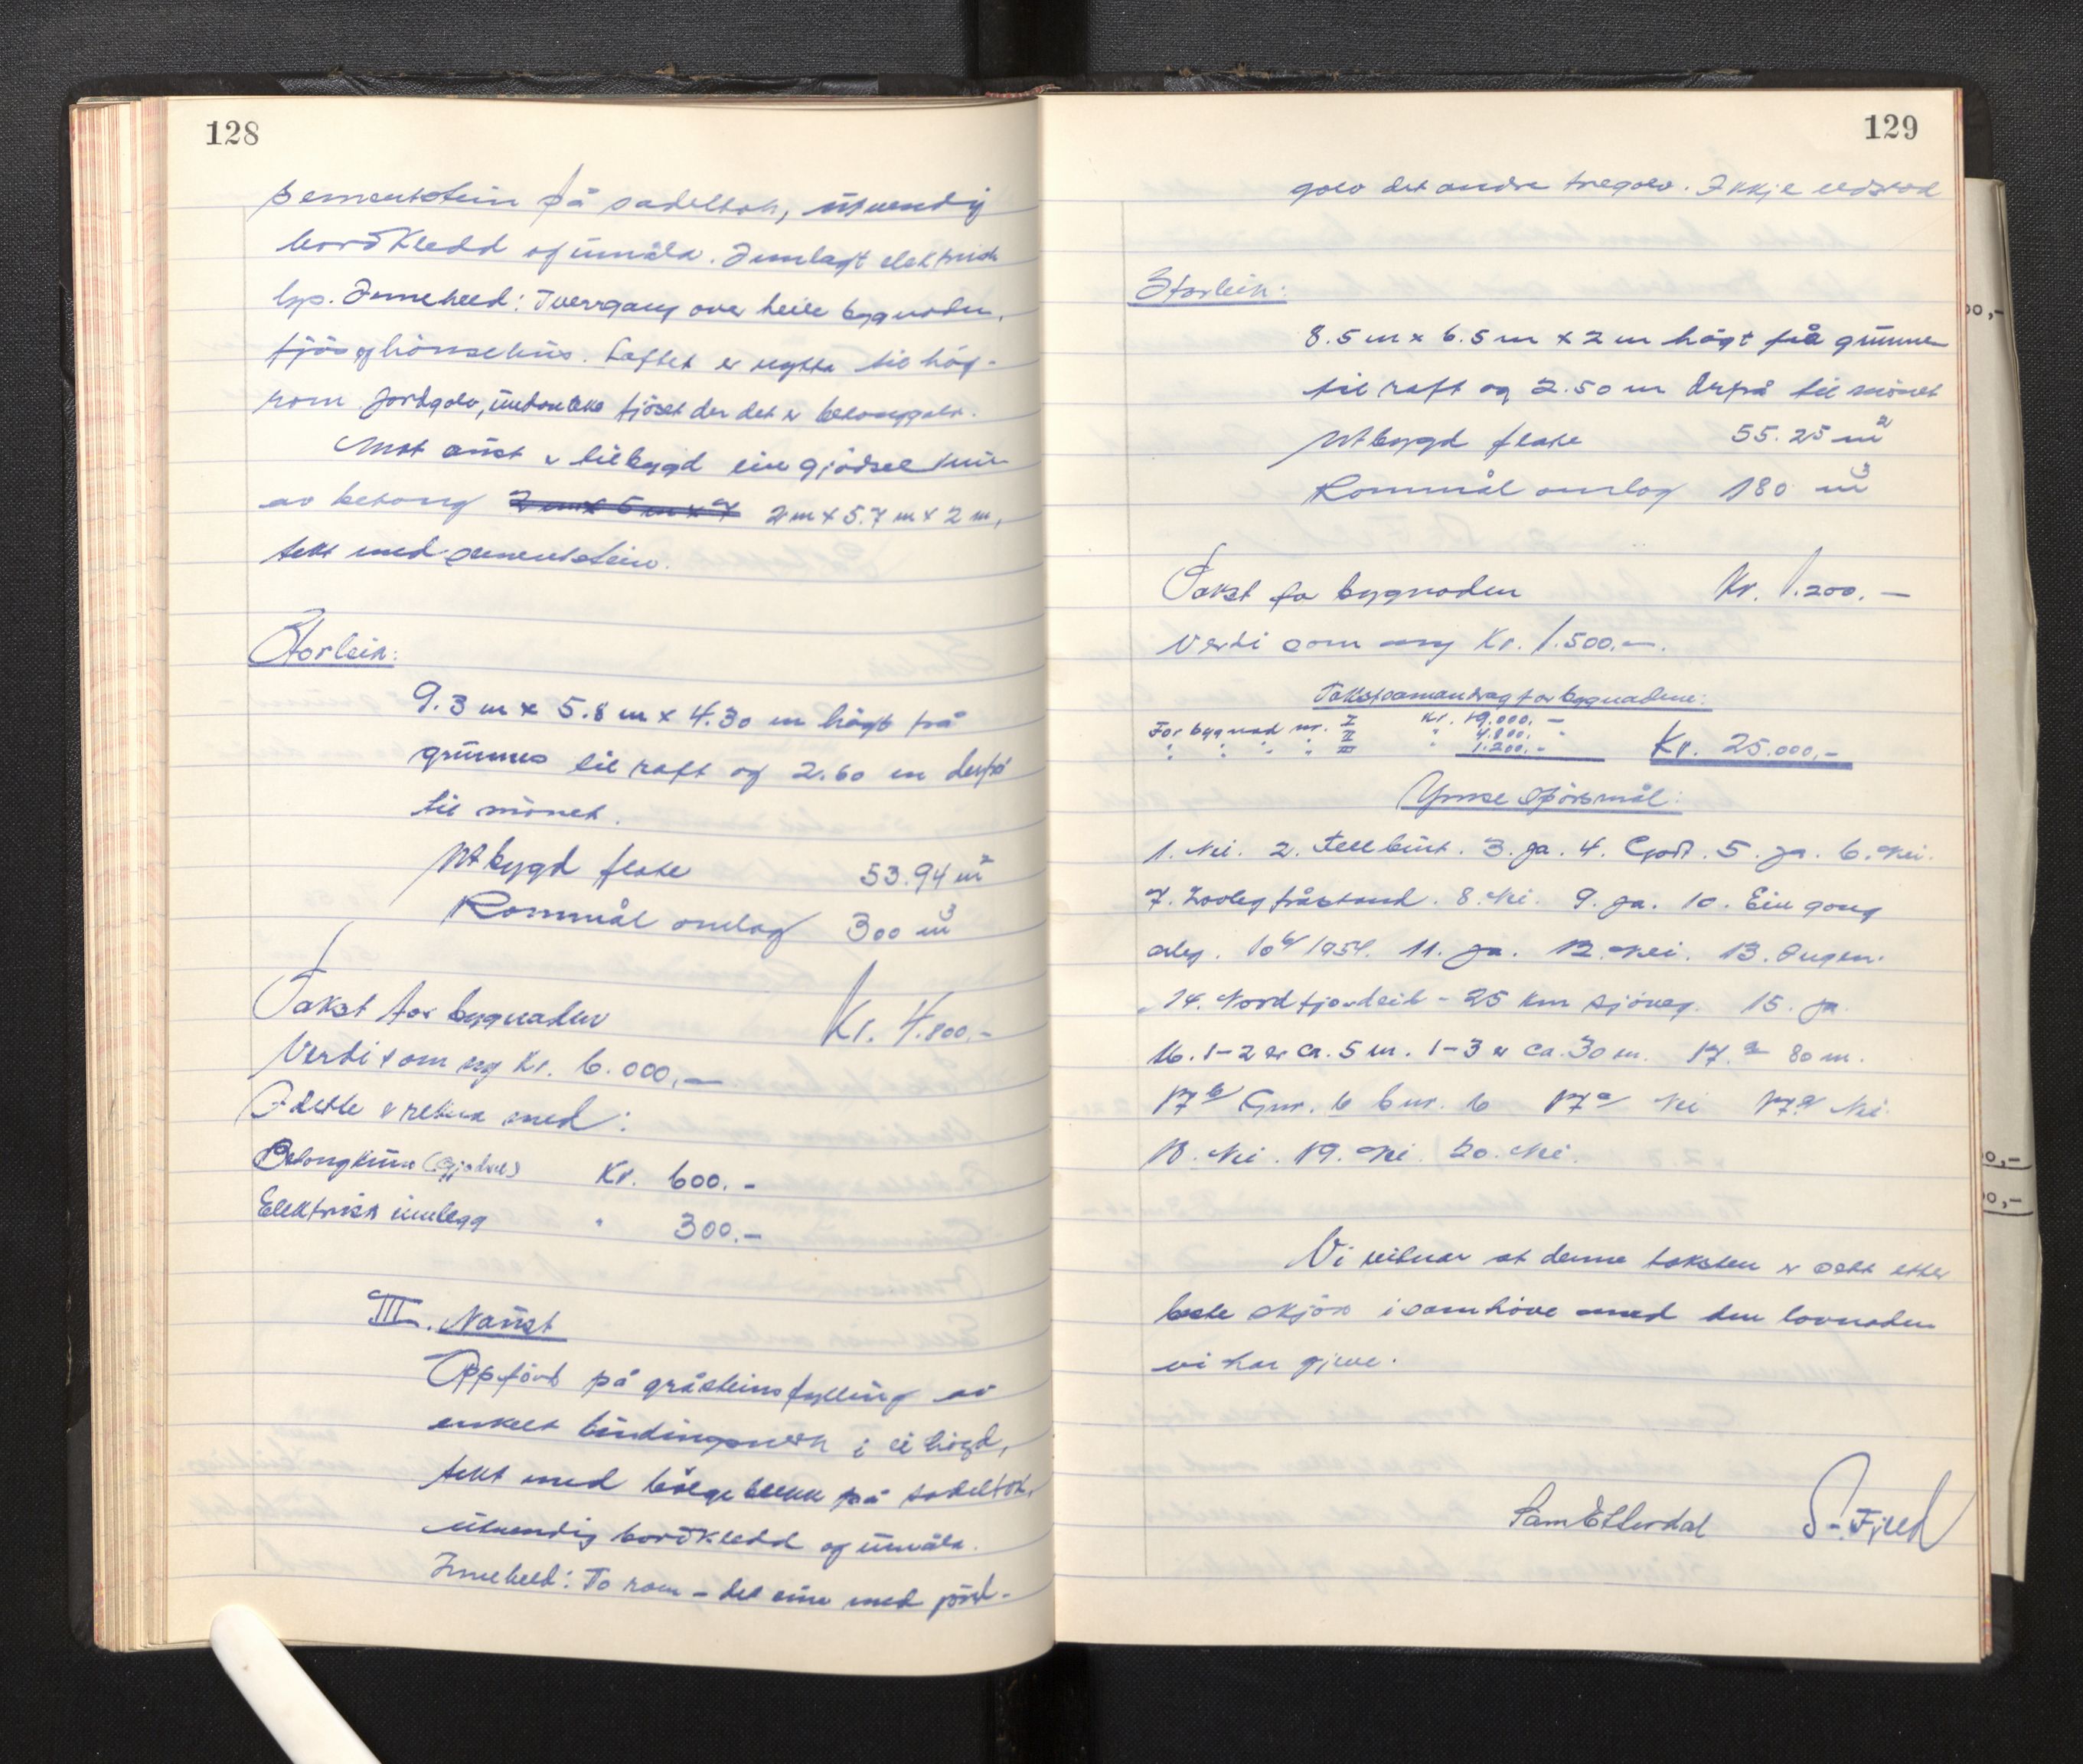 128
sementstein på sadeltak, utvendig
bordkledd og umåla. Innlagt elektrisk
lys. Inneheld: Tverrgang over heile bygnaden,
fjös og hönsehus. Loftet er nytta til höy-
rom. Jordgolv, undantake fjöset der det er betonggolv.
Mot aust er tilbygd ein gjödselkum
av betong 2 m x 5 m x 7 2 m x 5.7 m x 2 m,
tekt med sementstein.
Storleik:
9.3 m x 5.8 m x 4.30 m högt frå
grunnen til raft og 2.60 m derfrå
til mönet.
Utbygd flate 53.94 m²
Rommål omlag 300 m³
Takst for bygnaden Kr. 4.800.-
Verdi som ny Kr. 6.000,-
I dette er rekna med:
Betongkum (gjødsel) Kr. 600.-
Elektrisk innlegg " 300.-
III. Naust
Oppfört på gråsteinsfylling av
enkelt bindingsverk i ei högd,
tekt med bölgeblekk på sadeltak,
utvendig bordkledd og umåla.
Inneheld: To rom - det eine med jord-
129
golv det andre tregolv. Ikkje eldstad
Storleik:
8.5 m x 6.5 m x 2 m högt frå grunnen
til raft og 2.50 m derfrå til mönet
Utbygd flate 55.25 m²
Rommål omlag 180 m³
Takst for bygnaden Kr. 1.200.-
Verdi som ny Kr. 1.500.-.
Takstsamandrag for bygnadene:
For bygnad nr. I Kr. 19.000.-
" " " II " 4.800.-
" " " III 1.200.- Kr. 25.000,-
Ymse spörsmål:
1. Nei. 2. Fellbunt. 3. Ja. 4. Godt. 5. Ja. 6. Nei.
7. Lovleg fråstand. 8. Nei. 9. Ja. 10. Ein gong
årleg. 10/6 1954. 11. Ja. 12. Nei. 13. Ingen.
14. Nordfjordeid - 25 km sjöveg. 15. Ja.
16. 1-2 er ca. 5 m. 1-3 er ca. 30 m. 17.a 80 m.
17 b/ Gnr. 6 bnr. 6 17 c/ Nei 17 d/ Nei.
18. Nei. 19. Nei. 20. Nei.
Vi vitnar at denne taksten er sett etter
beste skjön i samhöve med den lovnaden
vi har gjeve.
S. Fjeld